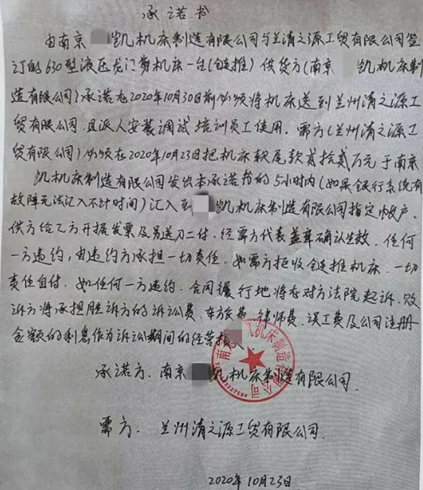 承诺书
由南京 凯机床制造有限公司与兰清之源工贸有限公司签
订的630型液压龙门剪机床一台(包推)供货方(南京 凯机床制
造有限公司)承诺在2020年10月30日前必须将机床送到兰州清之源工
贸有限公司,且派人安装调试培训员工使用。需方(兰州清之源工
贸有限公司)必须在2020年10月23日把机床款尾款贰拾贰万元于南京
凯机床制造有限公司发出本承诺书的5小时内(如果银行系统有
故障无法汇入不计时间)汇入到 凯机床制造有限公司指定帐户,
供方给乙方开据发票及另送刀二付,经需方代表盖章确认生效,任何
一方违约,由违约方承担一切责任,如需方拒收包推机床,一切
责任自付,如任何一方违约,合同履行地将在对方法院起诉,败
诉方将承担胜诉方的诉讼费、车旅费、律师费、误工费及公司注册
金额的利息作为诉讼期间的经营损
承诺方:南京 凯机床制造有限公司
需方:兰州清之源工贸有限公司
2020年10月23日